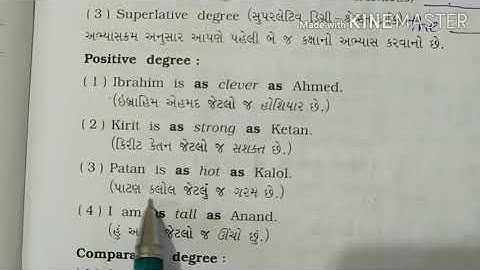 Made with KINEMASTER
(3) Superlative degree (સુપરલેટિવ ડિગ્રી -
અભ્યાસક્રમ અનુસાર આપણે પહેલી બે જ કક્ષાનો અભ્યાસ કરવાનો છે.
Positive degree :
(1) Ibrahim is as clever as Ahmed.
(ઇબ્રાહિમ એહમદ જેટલો જ હોશિયાર છે.)
(2) Kirit is as strong as Ketan.
(કિરીટ કેતન જેટલો જ સશક્ત છે.)
(3) Patan is as hot as Kalol.
(પાટણ કલોલ જેટલું જ ગરમ છે.)
(4) I am as tall as Anand.
(હું જેટલો જ ઊંચો છું.)
degree :